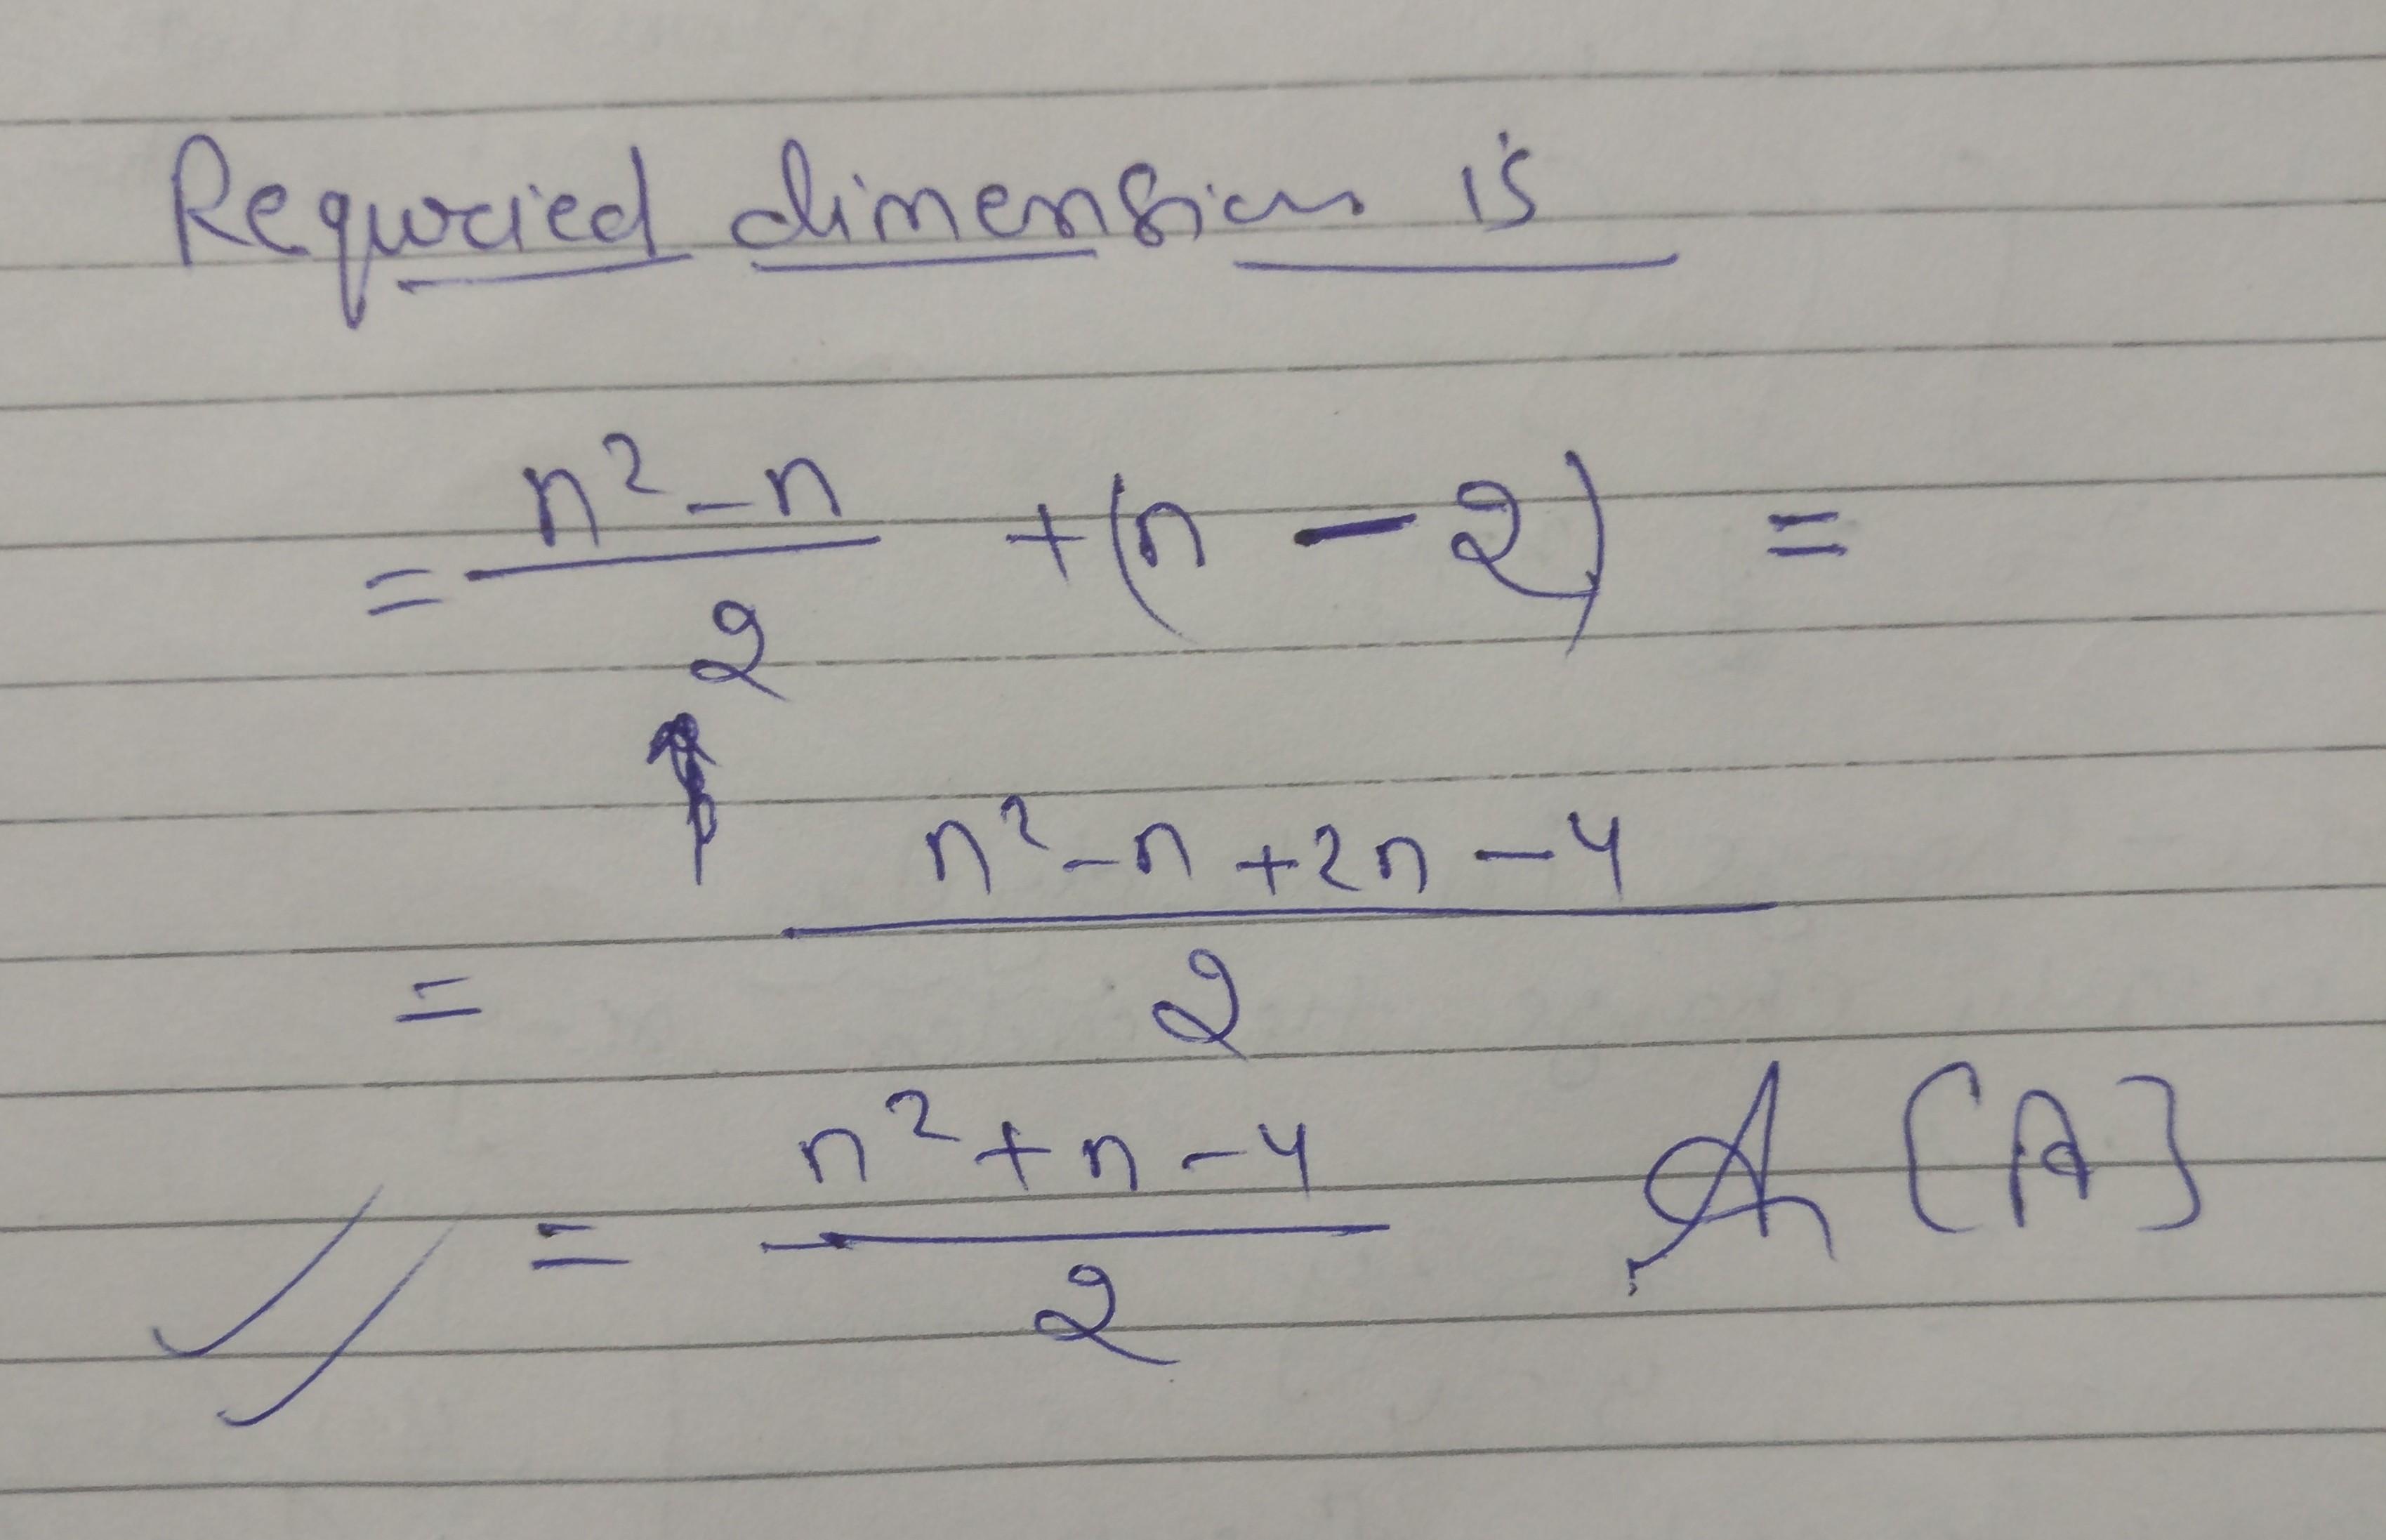 Requried dimension is
= n² - n / 2 + (n - 2) =
= n² - n + 2n - 4 / 2
= n² + n - 4 / 2 A [A]